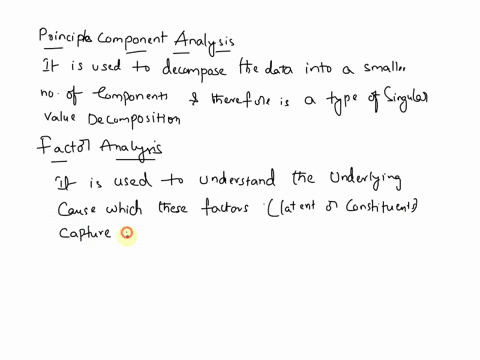 Principle Component Analysis
It is used to decompose the data into a smaller
no. of Components & therefore is a type of Singular
value Decomposition
Factor Analysis
It is used to understand the underlying
Cause which these factors (latent or Constituents)
Capture